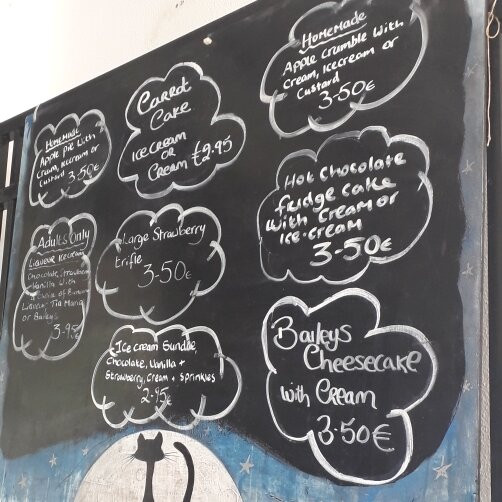 Homemade
Apple pie with
Cream, Icecream or
Custard 3.50€
Carrot
Cake
Icecream
OR
Cream £2.95
Homemade
Apple crumble with
Cream, Icecream or
Custard
3.50€
Adults Only
Liqueur Icecream
Chocolate, Strawberry
Vanilla with
Choice of
Tia Maria
or Baileys
3.95€
Large Strawberry
trifle
3.50€
Hot Chocolate
fudge cake
with Cream or
Ice-cream
3.50€
Ice cream Sundae
Chocolate, Vanilla +
Strawberry, Cream + Sprinkles
2.95€
Baileys
Cheesecake
with Cream
3.50€